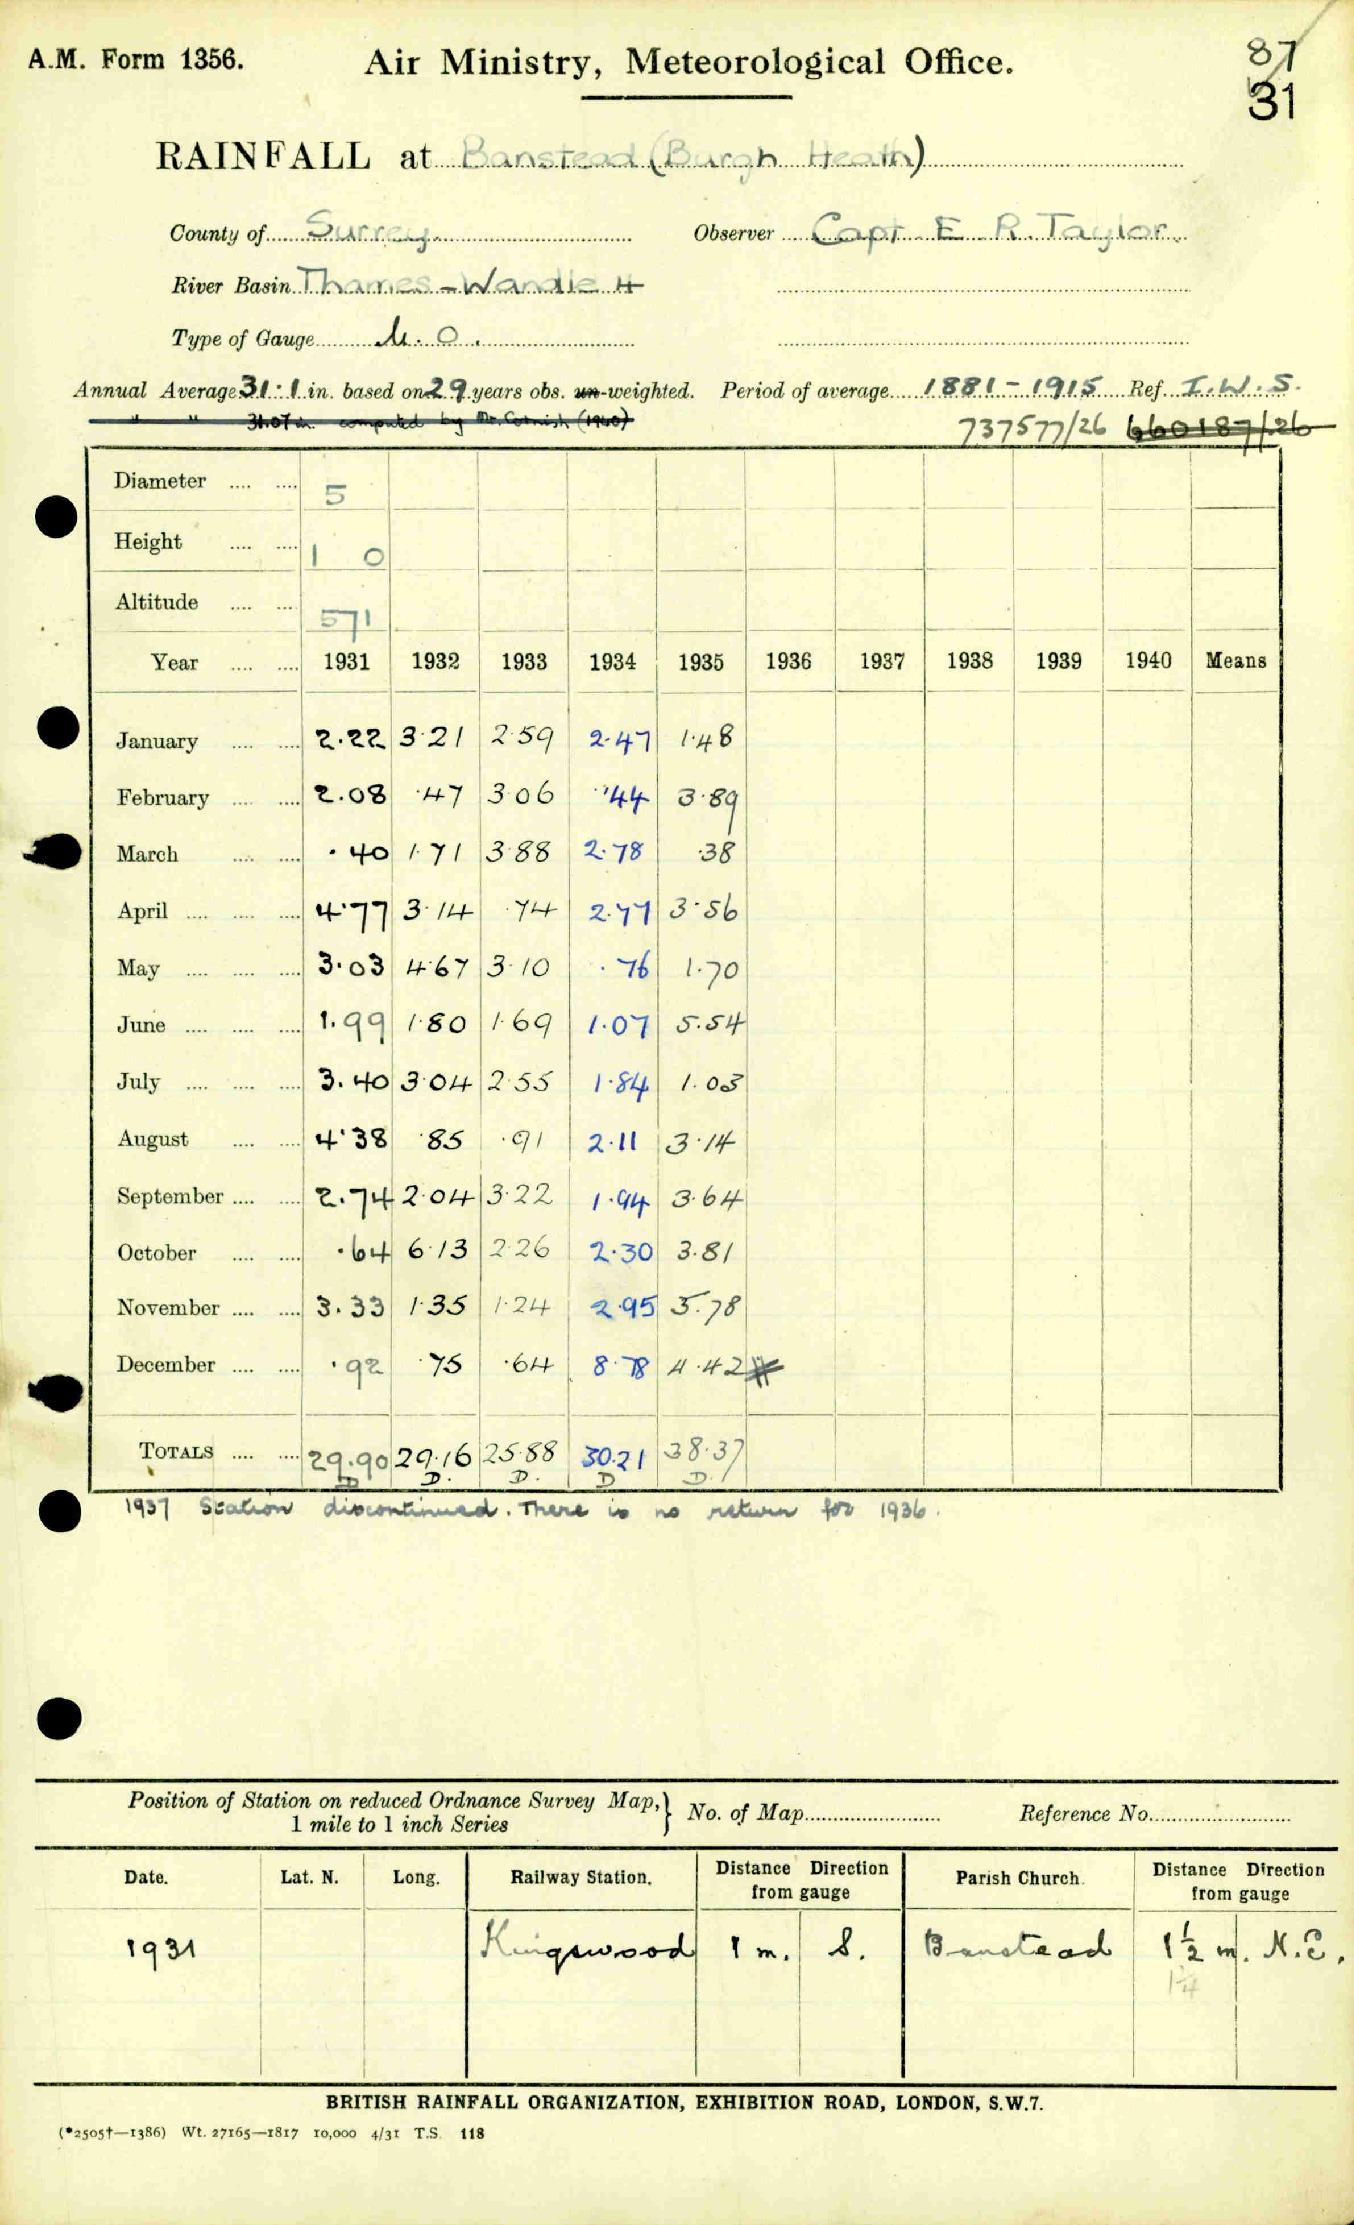 A.M. Form 1356. Air Ministry, Meteorological Office. 87
31
RAINFALL at Banstead (Burgh Heath)
County of Surrey Observer Capt E R. Taylor.
River Basin Thames - Wandle 4
Type of Gauge M.O.
Annual Average 31.1 in. based on 29 years obs. un-weighted. Period of average 1881-1915 Ref. I.W.S.
" " 31.07 in computed by Mr. Cornish (1940) 737577/26 660187/26
Diameter .... .... 5
Height .... .... 1 0
Altitude .... .... 571
Year .... .... 1931 1932 1933 1934 1935 1936 1937 1938 1939 1940 Means
January .... .... 2.22 3.21 2.59 2.47 1.48
February .... .... 2.08 .47 3.06 .44 3.89
March .... .... .40 1.71 3.88 2.78 .38
April .... .... .... 4.77 3.14 .74 2.77 3.56
May .... .... .... 3.03 4.67 3.10 .76 1.70
June .... .... .... 1.99 1.80 1.69 1.07 5.54
July .... .... .... 3.40 3.04 2.55 1.84 1.03
August .... .... 4.38 .85 .91 2.11 3.14
September .... .... 2.74 2.04 3.22 1.94 3.64
October .... .... .64 6.13 2.26 2.30 3.81
November .... .... 3.33 1.35 1.24 2.95 5.78
December .... .... .92 .75 .64 8.78 4.42
TOTALS .... .... 29.90 29.16 25.88 30.21 38.37
D D. D. D D.
1937 Station discontinued. There is no return for 1936.
Position of Station on reduced Ordnance Survey Map, } No. of Map Reference No.
1 mile to 1 inch Series
Date. Lat. N. Long. Railway Station. Distance Direction from gauge Parish Church. Distance Direction from gauge
1931 Kingswood 1 m. S. Banstead 1½ m. N.E.
1¼
BRITISH RAINFALL ORGANIZATION, EXHIBITION ROAD, LONDON, S.W.7.
(*2505†—1386) Wt. 27165—1817 10,000 4/31 T.S. 118